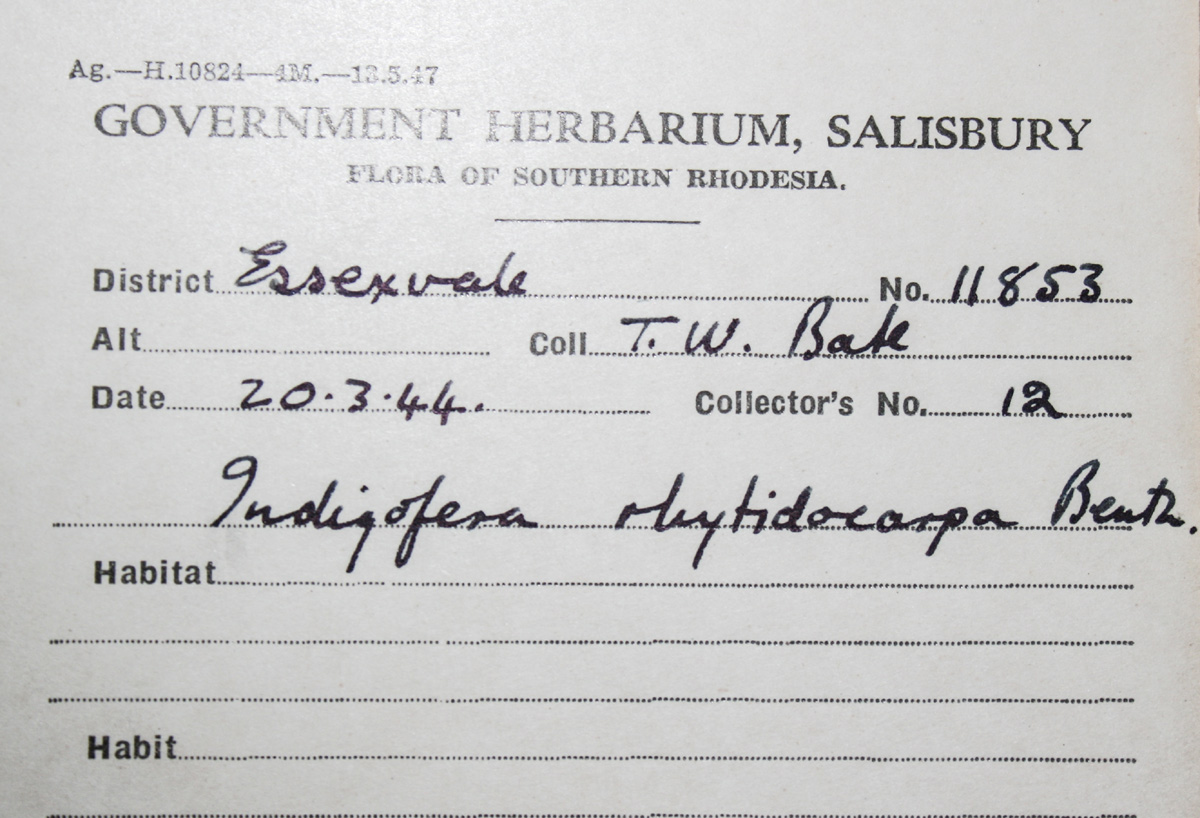 Ag.—H.10824—4M.—13.5.47
GOVERNMENT HERBARIUM, SALISBURY
FLORA OF SOUTHERN RHODESIA.
District Essexvale No. 11853
Alt Coll T. W. Bate
Date 20.3.44. Collector's No. 12
Indigofera rhytidocarpa Benth.
Habitat
Habit